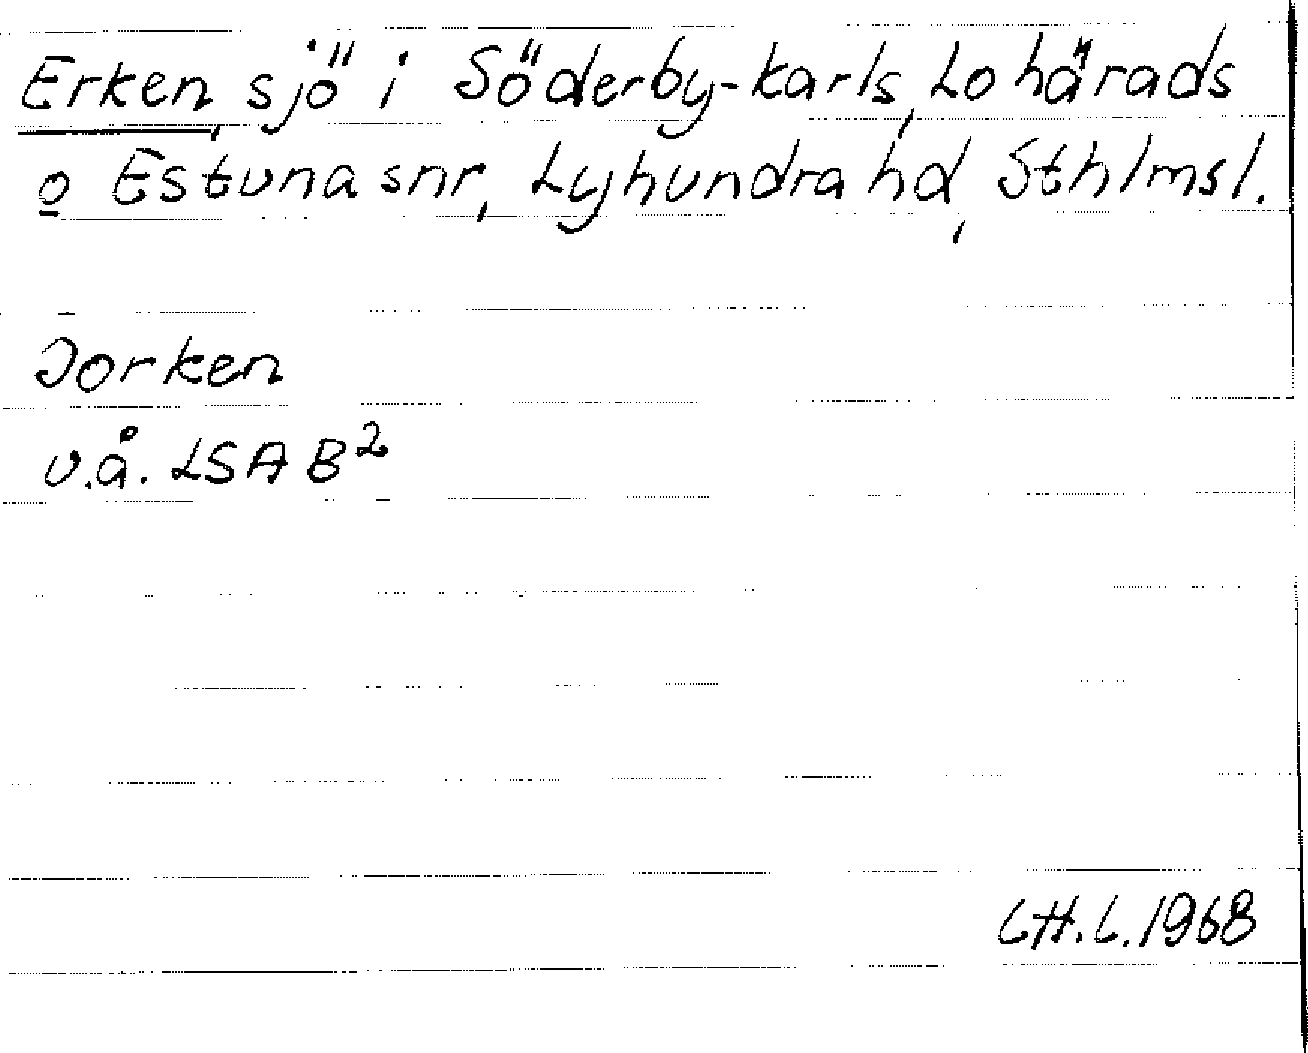 Erken, sjö i Söderby-Karls, Lohärads
o Estuna snr, Lyhundra hd, Sthlmsl.
Jorken
u.å. LSA B²
1968